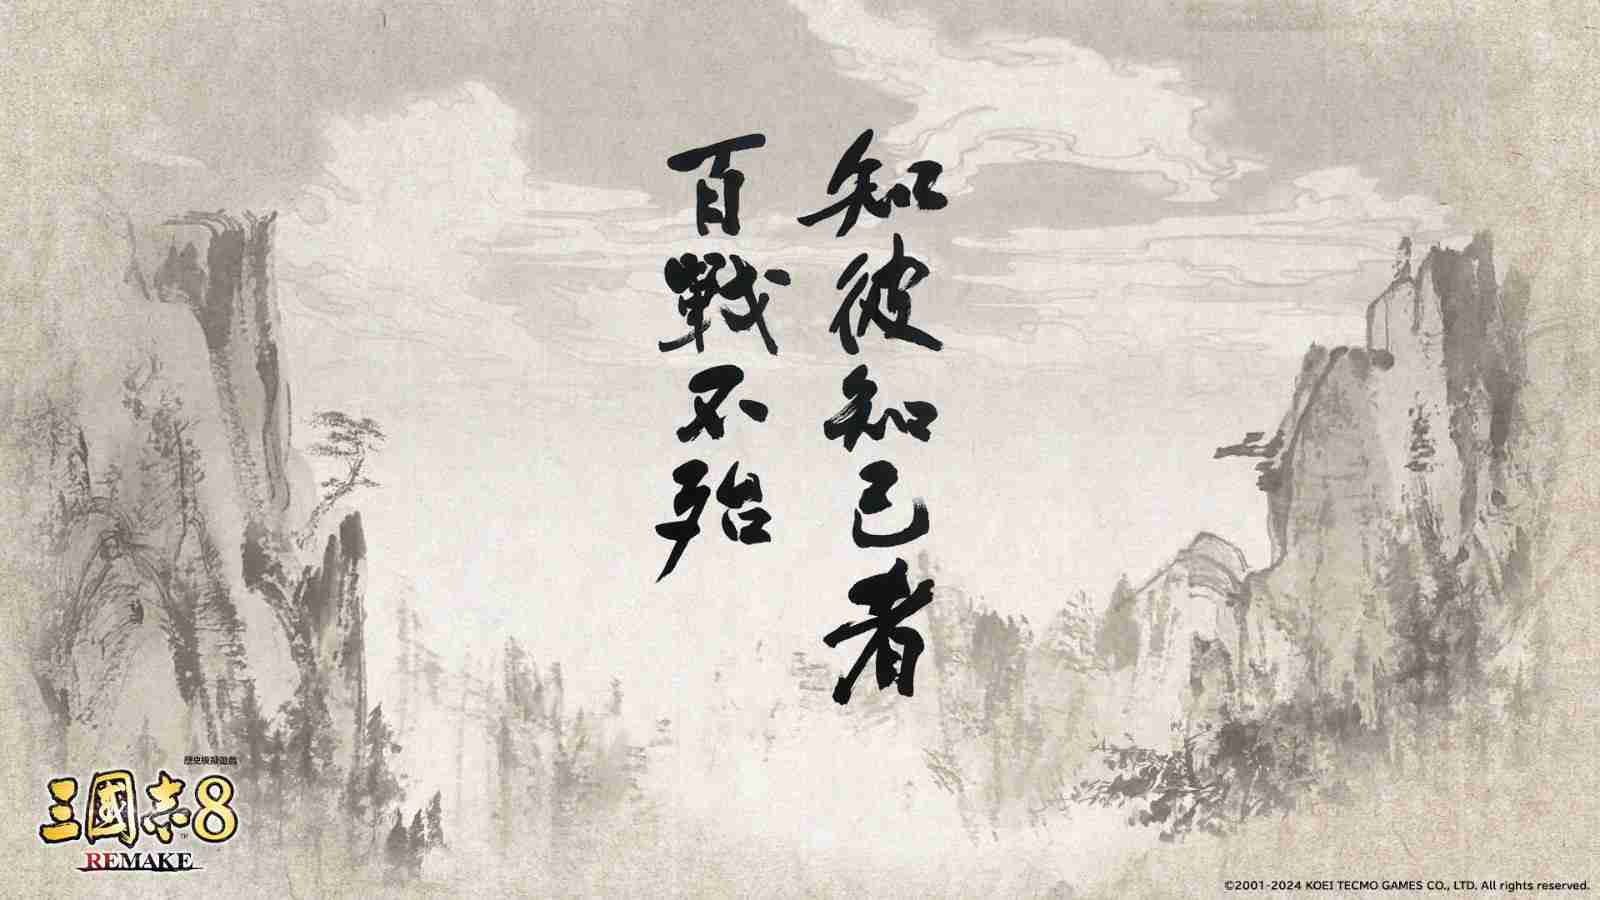 知彼知己者
百戰不殆
歷史模擬遊戲
三國志8
REMAKE
©2001-2024 KOEI TECMO GAMES CO., LTD. All rights reserved.